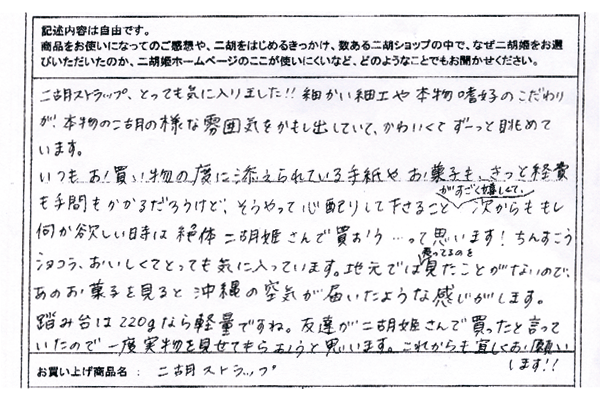 記述内容は自由です。
商品をお使いになってのご感想や、二胡をはじめるきっかけ、数ある二胡ショップの中で、なぜ二胡姫をお選
びいただいたのか、二胡姫ホームページのここが使いにくいなど、どのようなことでもお聞かせください。
二胡ストラップ、とっても気に入りました!! 細かい細工や本物嗜好のこだわり
が、本物の二胡の様な雰囲気をかもし出していて、かわいくてずーっと眺めて
います。
いつもお買い物の度に添えられている手紙やお菓子も、きっと経費
も手間もかかるだろうけど、そうやって心配りして下さることがすごく嬉しくて、次からももし
何か欲しい時は絶体二胡姫さんで買おう…って思います! ちんすこう
ショコラ、おいしくてとっても気に入っています。地元では売ってるのを見たことがないので、
あのお菓子を見ると沖縄の空気が届いたような感じがします。
踏み台は220gなら軽量ですね。友達が二胡姫さんで買ったと言って
いたので一度実物を見せてもらおうと思います。これからも宜しくお願い
します!!
お買い上げ商品名: 二胡ストラップ